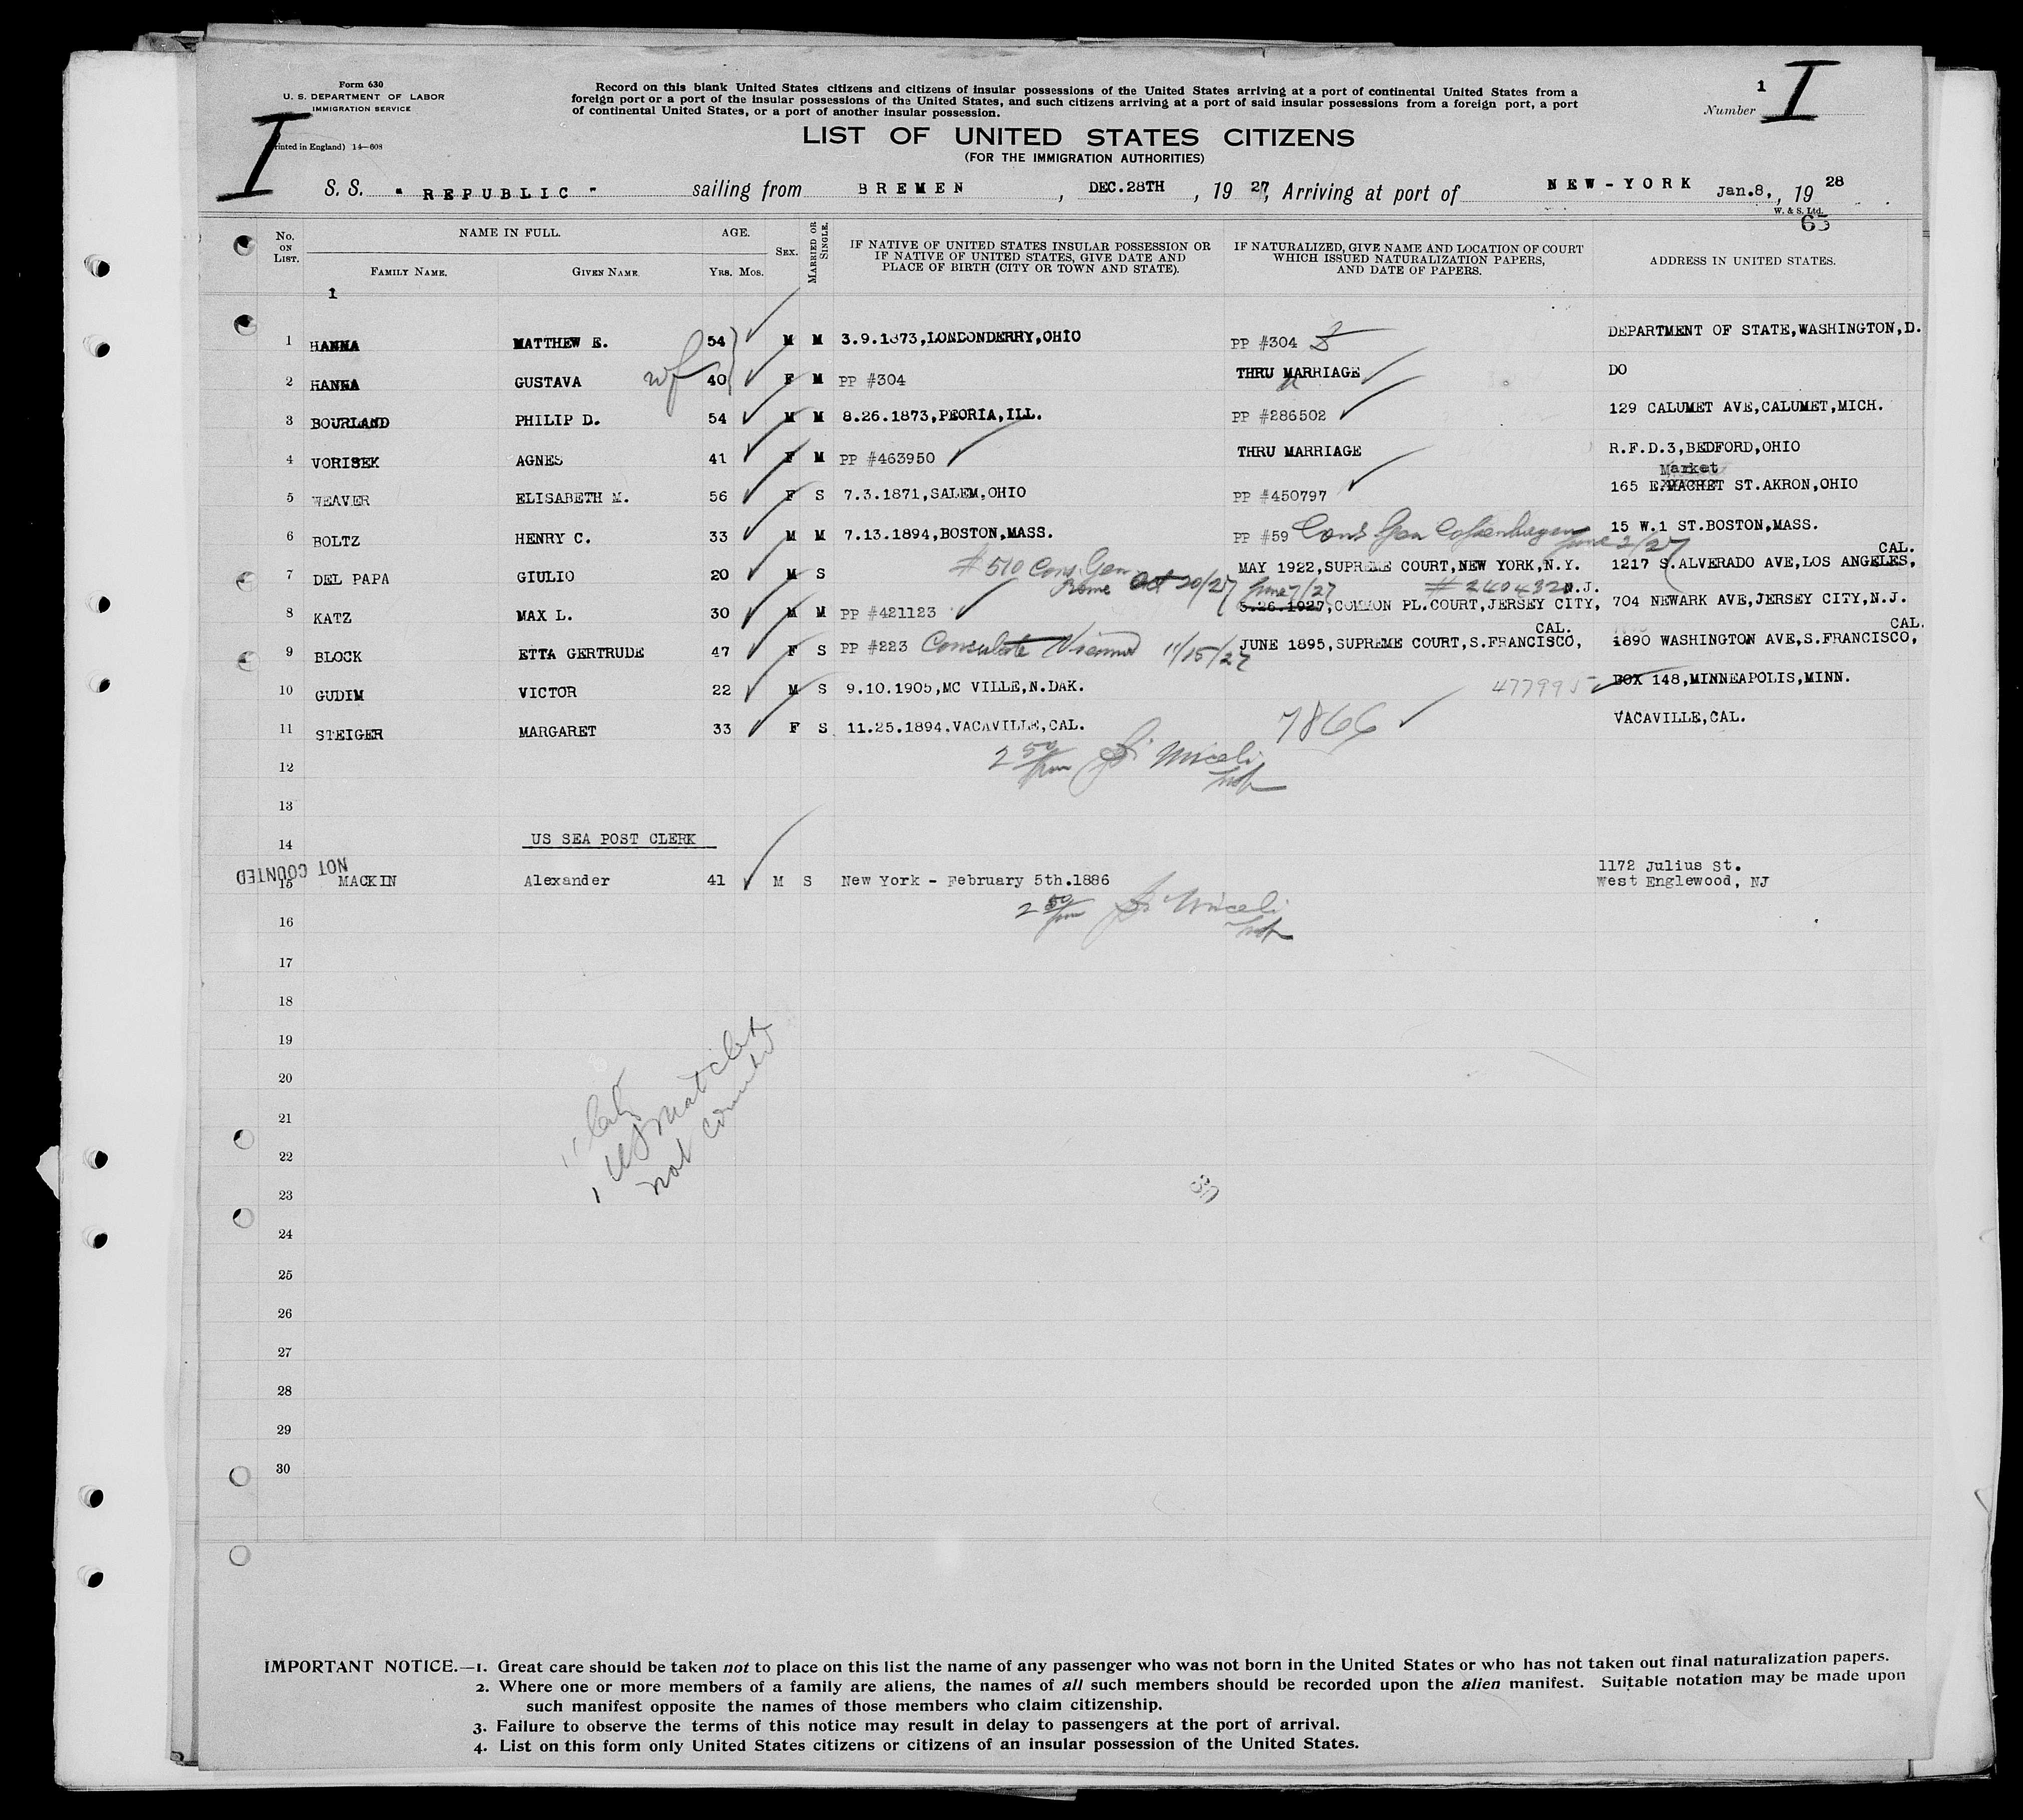 Form 630
U. S. DEPARTMENT OF LABOR
IMMIGRATION SERVICE
Printed in England) 14—608
I
Record on this blank United States citizens and citizens of insular possessions of the United States arriving at a port of continental United States from a
foreign port or a port of the insular possessions of the United States, and such citizens arriving at a port of said insular possessions from a foreign port, a port
of continental United States, or a port of another insular possession.
LIST OF UNITED STATES CITIZENS
(FOR THE IMMIGRATION AUTHORITIES)
1
Number I
S. S. "REPUBLIC" sailing from BREMEN, DEC.28TH, 1927, Arriving at port of NEW-YORK Jan.8, 1928
W. & S. Ltd.
65
No. ON LIST. NAME IN FULL. AGE. SEX. MARRIED OR SINGLE. IF NATIVE OF UNITED STATES INSULAR POSSESSION OR IF NATIVE OF UNITED STATES, GIVE DATE AND PLACE OF BIRTH (CITY OR TOWN AND STATE). IF NATURALIZED, GIVE NAME AND LOCATION OF COURT WHICH ISSUED NATURALIZATION PAPERS, AND DATE OF PAPERS. ADDRESS IN UNITED STATES.
FAMILY NAME. GIVEN NAME. YRS. MOS.
1
1 HANNA MATTHEW E. 54 M M 3.9.1873,LONDONDERRY,OHIO PP #304 DEPARTMENT OF STATE,WASHINGTON,D.
2 HANNA GUSTAVA wf 40 F M PP #304 THRU MARRIAGE DO
3 BOURLAND PHILIP D. 54 M M 8.26.1873,PEORIA,ILL. PP #286502 129 CALUMET AVE,CALUMET,MICH.
4 VORISEK AGNES 41 F M PP #463950 THRU MARRIAGE R.F.D.3,BEDFORD,OHIO
Market
5 WEAVER ELISABETH M. 56 F S 7.3.1871,SALEM,OHIO PP #450797 165 E.MACHET ST.AKRON,OHIO
6 BOLTZ HENRY C. 33 M M 7.13.1894,BOSTON,MASS. PP #59 Cons Gen Copenhagen June 2/27 15 W.1 ST.BOSTON,MASS.
CAL.
7 DEL PAPA GIULIO 20 M S #510 Cons. Gen Rome Oct 20/27 MAY 1922,SUPREME COURT,NEW YORK,N.Y. 1217 S.ALVERADO AVE,LOS ANGELES,
June 7/27 # 240432 N.J.
8 KATZ MAX L. 30 M M PP #421123 3.26.1927,COMMON PL.COURT,JERSEY CITY, 704 NEWARK AVE,JERSEY CITY,N.J.
CAL. CAL.
9 BLOCK ETTA GERTRUDE 47 F S PP #223 Consulate Vienna 11/15/27 JUNE 1895,SUPREME COURT,S.FRANCISCO, 1890 WASHINGTON AVE,S.FRANCISCO,
10 GUDIM VICTOR 22 M S 9.10.1905,MC VILLE,N.DAK. 477995 BOX 148,MINNEAPOLIS,MINN.
11 STEIGER MARGARET 33 F S 11.25.1894,VACAVILLE,CAL. 7866 VACAVILLE,CAL.
12 2 50/pm Miceli
13
14 US SEA POST CLERK
NOT COUNTED
1172 Julius St.
15 MACKIN Alexander 41 M S New York - February 5th.1886 West Englewood, NJ
16 2 50/pm Miceli
17
18
19
20
21
22
23
24
25
26
27
28
29
30
not counted
30
IMPORTANT NOTICE.—1. Great care should be taken not to place on this list the name of any passenger who was not born in the United States or who has not taken out final naturalization papers.
2. Where one or more members of a family are aliens, the names of all such members should be recorded upon the alien manifest. Suitable notation may be made upon
such manifest opposite the names of those members who claim citizenship.
3. Failure to observe the terms of this notice may result in delay to passengers at the port of arrival.
4. List on this form only United States citizens or citizens of an insular possession of the United States.